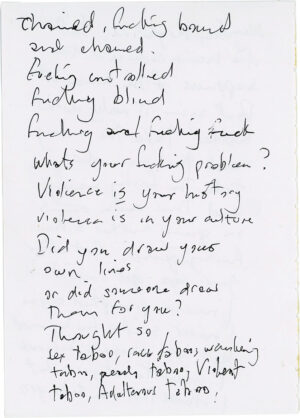 chained, fucking bound
and chained.
fucking controlled
fucking blind
fucking and fucking fuck
whats your fucking problem?
Violence is your history
violence is in your culture
Did you draw your
own lines
or did someone draw
them for you?
Thought so,
sex taboo, race taboo, wanking
taboo, taboo, Violent
taboo, Adulterous taboo,